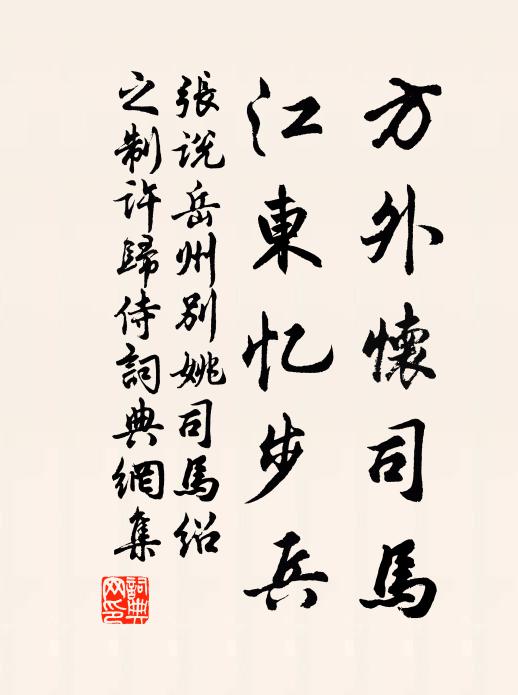 方外懷司馬
江東忆步兵
張說岳州別姚司馬紹
之制許歸侍詞典網集
詞典
网印